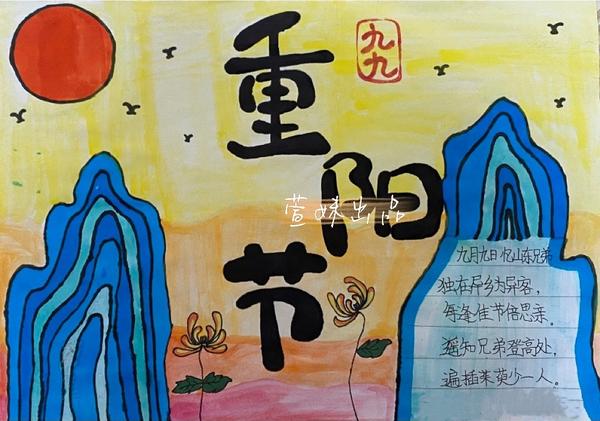 重阳节
九九
萱妹出品
九月九日忆山东兄弟
独在异乡为异客，
每逢佳节倍思亲。
遥知兄弟登高处，
遍插茱萸少一人。